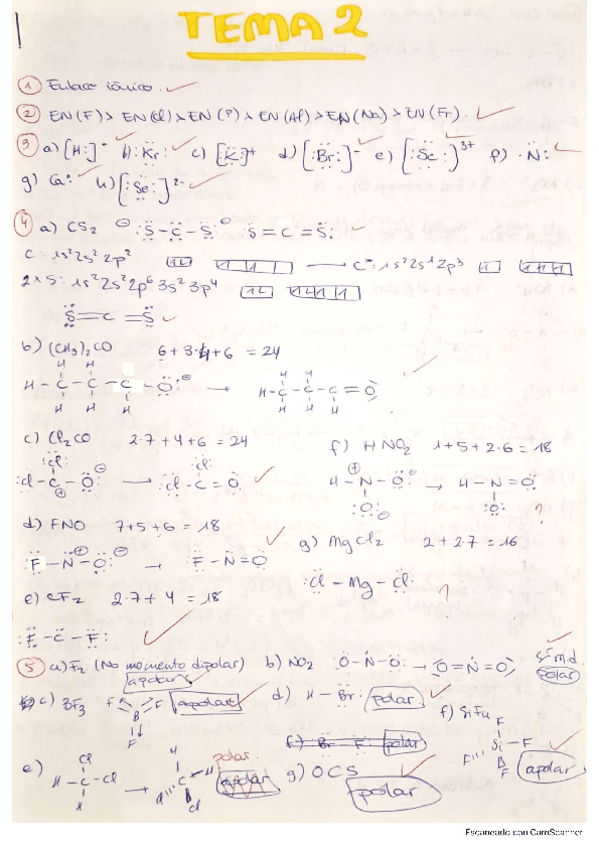 TEMA 2
① Enlace iónico.
② EN(F) > EN(Cl) > EN(P) > EN(Al) > EN(Na) > EN(Fr).
③ a) [H:]⁻ b) :Kr: c) [K]⁺ d) [:Br:]⁻ e) [:Sc:]³⁺ f) ·N:
g) Ca: h) [:Se:]²⁻
④ a) CS₂ ⊖ :S-C-S: ⊖ :S=C=S:
C: 1s²2s²2p² → C*: 1s²2s¹2p³
2×S: 1s²2s²2p⁶3s²3p⁴
S=C=S
b) (CH₃)₂CO +6 = 24
H H H
H-C-C-C-O:⊖ → H-C-C-C=O
H H H
c) Cl₂CO 2·7+4+6=24 f) HNO₂ 1+5+2·6=18
:Cl: :Cl: H-N-O: → H-N=O
:Cl-C-O:⊖ → :Cl-C=O :O:⊖ :O: ?
d) FNO 7+5+6=18 g) MgCl₂ 2+2·7=16
:F-N-O: → :F-N=O :Cl-Mg-Cl: ?
e) CF₂ 2·7+4=18
:F-C-F:
⑤ a) F₂ (No momento dipolar) b) NO₂ :O-N-O: → O=N=O sí m.d.
apolar polar
c) BF₃ F B F F apolar d) H-Br: polar f) SiF₄
f) Br-F: polar F Si F F apolar
e) Cl H-C-Cl H → H C H Cl Cl polar apolar g) OCS polar
Escaneado con CamScanner